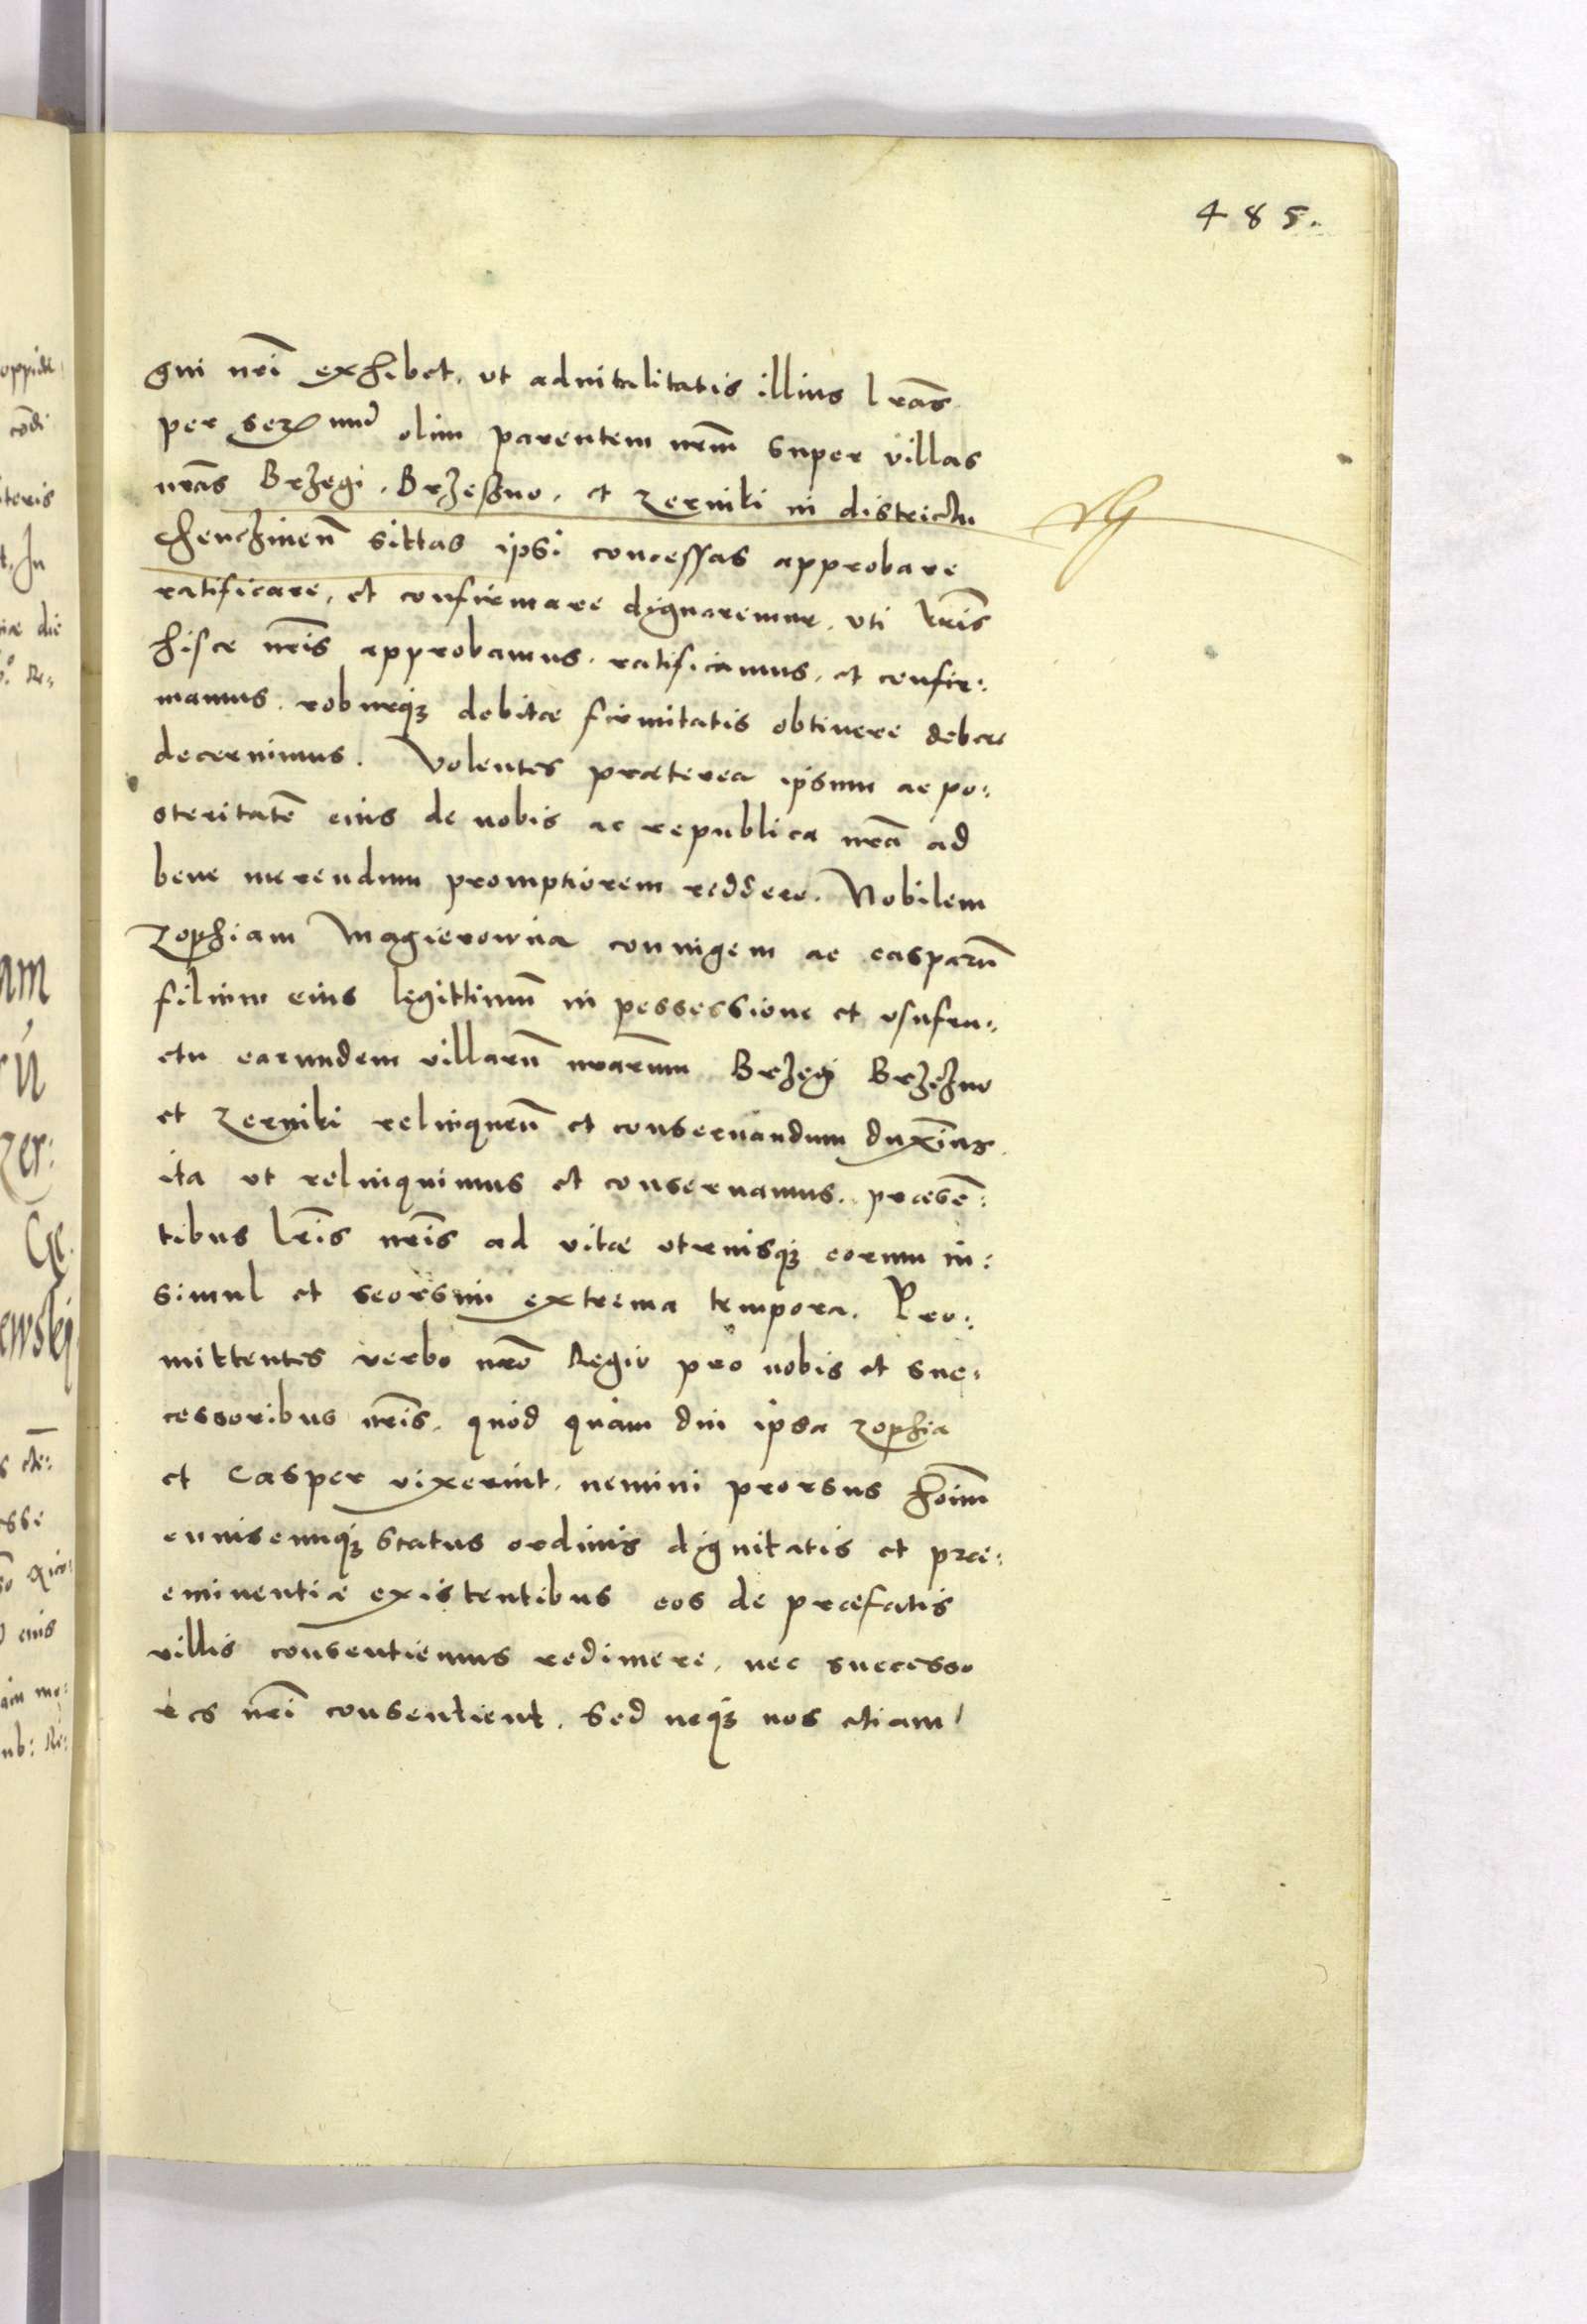 485.
gni nr̄i exhibet, ut aduitalitatis illius l r̄as
per Serᵐum olim parentem nr̄m super villas
nr̄as Brzegi, Brzeszno, et Zerniki in districtu
Chenczinen̄ sittas ipsi concessas approbare
ratificare, et confirmare dignaremur, uti l r̄is
hisce nr̄is approbamus, ratificamus, et confir:
mamus, roburq₃ debitæ firmitatis obtinere debere
decernimus. Volentes præterea ipsum ac po:
steritatē eius de nobis ac republica nr̄a ad
bene merendum promptiorem reddere. Nobilem
Zophiam Magierowna coniugem ac casparū
filium eius legittimū in possessione et usufru:
ctu earundem villarū nr̄arum Brzegi Brzezno
et Zerniki relinquen̄ et conseruandum duximus
ita ut relinquimus et conseruamus, præsē:
tibus l r̄is nr̄is ad vitæ utriusq₃ eorum in:
simul et seorsim extrema tempora. Pro:
mittentes verbo nr̄o Regio pro nobis et suc:
cessoribus nr̄is, quod quam diu ipsa Zophia
et Casper vixerint, nemini prorsus hoīm
cuiuscunq₃ status ordinis dignitatis et præ:
eminentiæ existentibus eos de præfatis
villis consentiemus redimere, nec successo
res nr̄i consentient. Sed neq₃ nos etiam